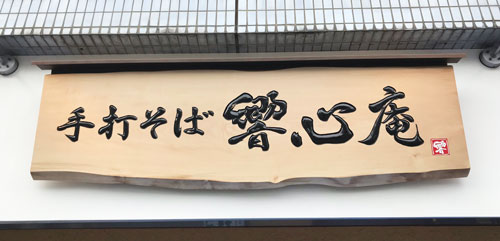 手打そば 響心庵